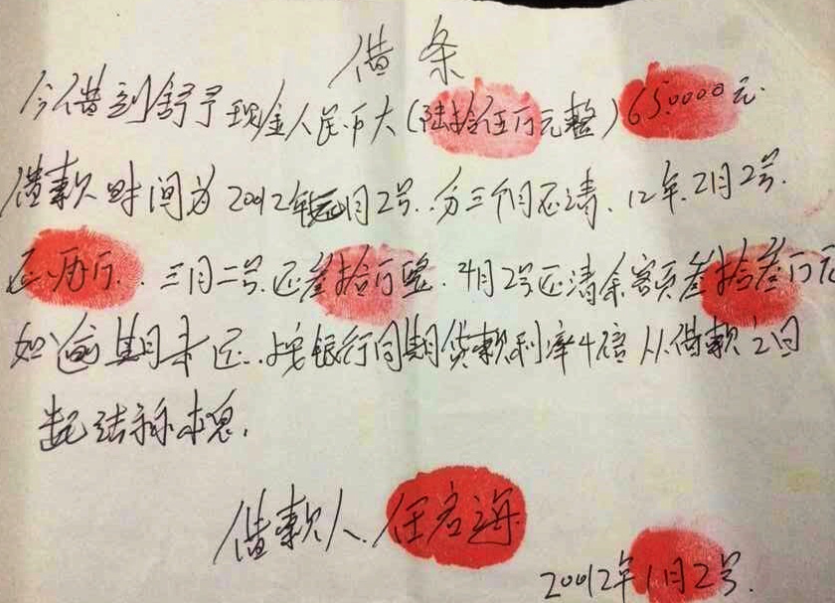 借条
今借到舒予现金人民币大(陆拾伍万元整)650000元.
借款时间为2012年元月2号.分三个月还清.12年.2月2号.
还.两万.三月二号.还叁拾万整.4月2号还清余额叁拾叁万元
如逾期未还.按银行同期贷款利率4倍从借款之日
起结算本息.
借款人.任启海
2012年1月2号.